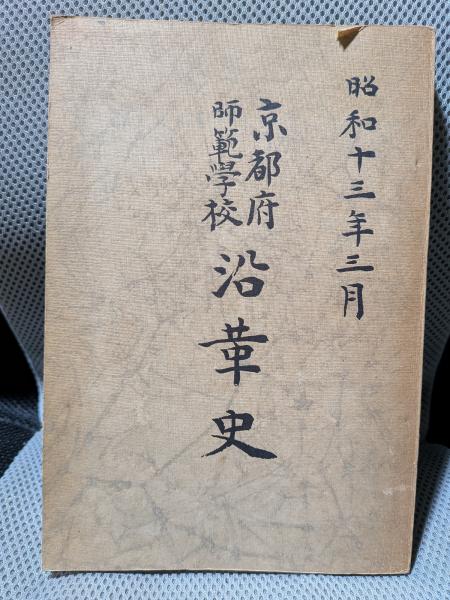 昭和十三年三月
京都府
師範學校
沿革史